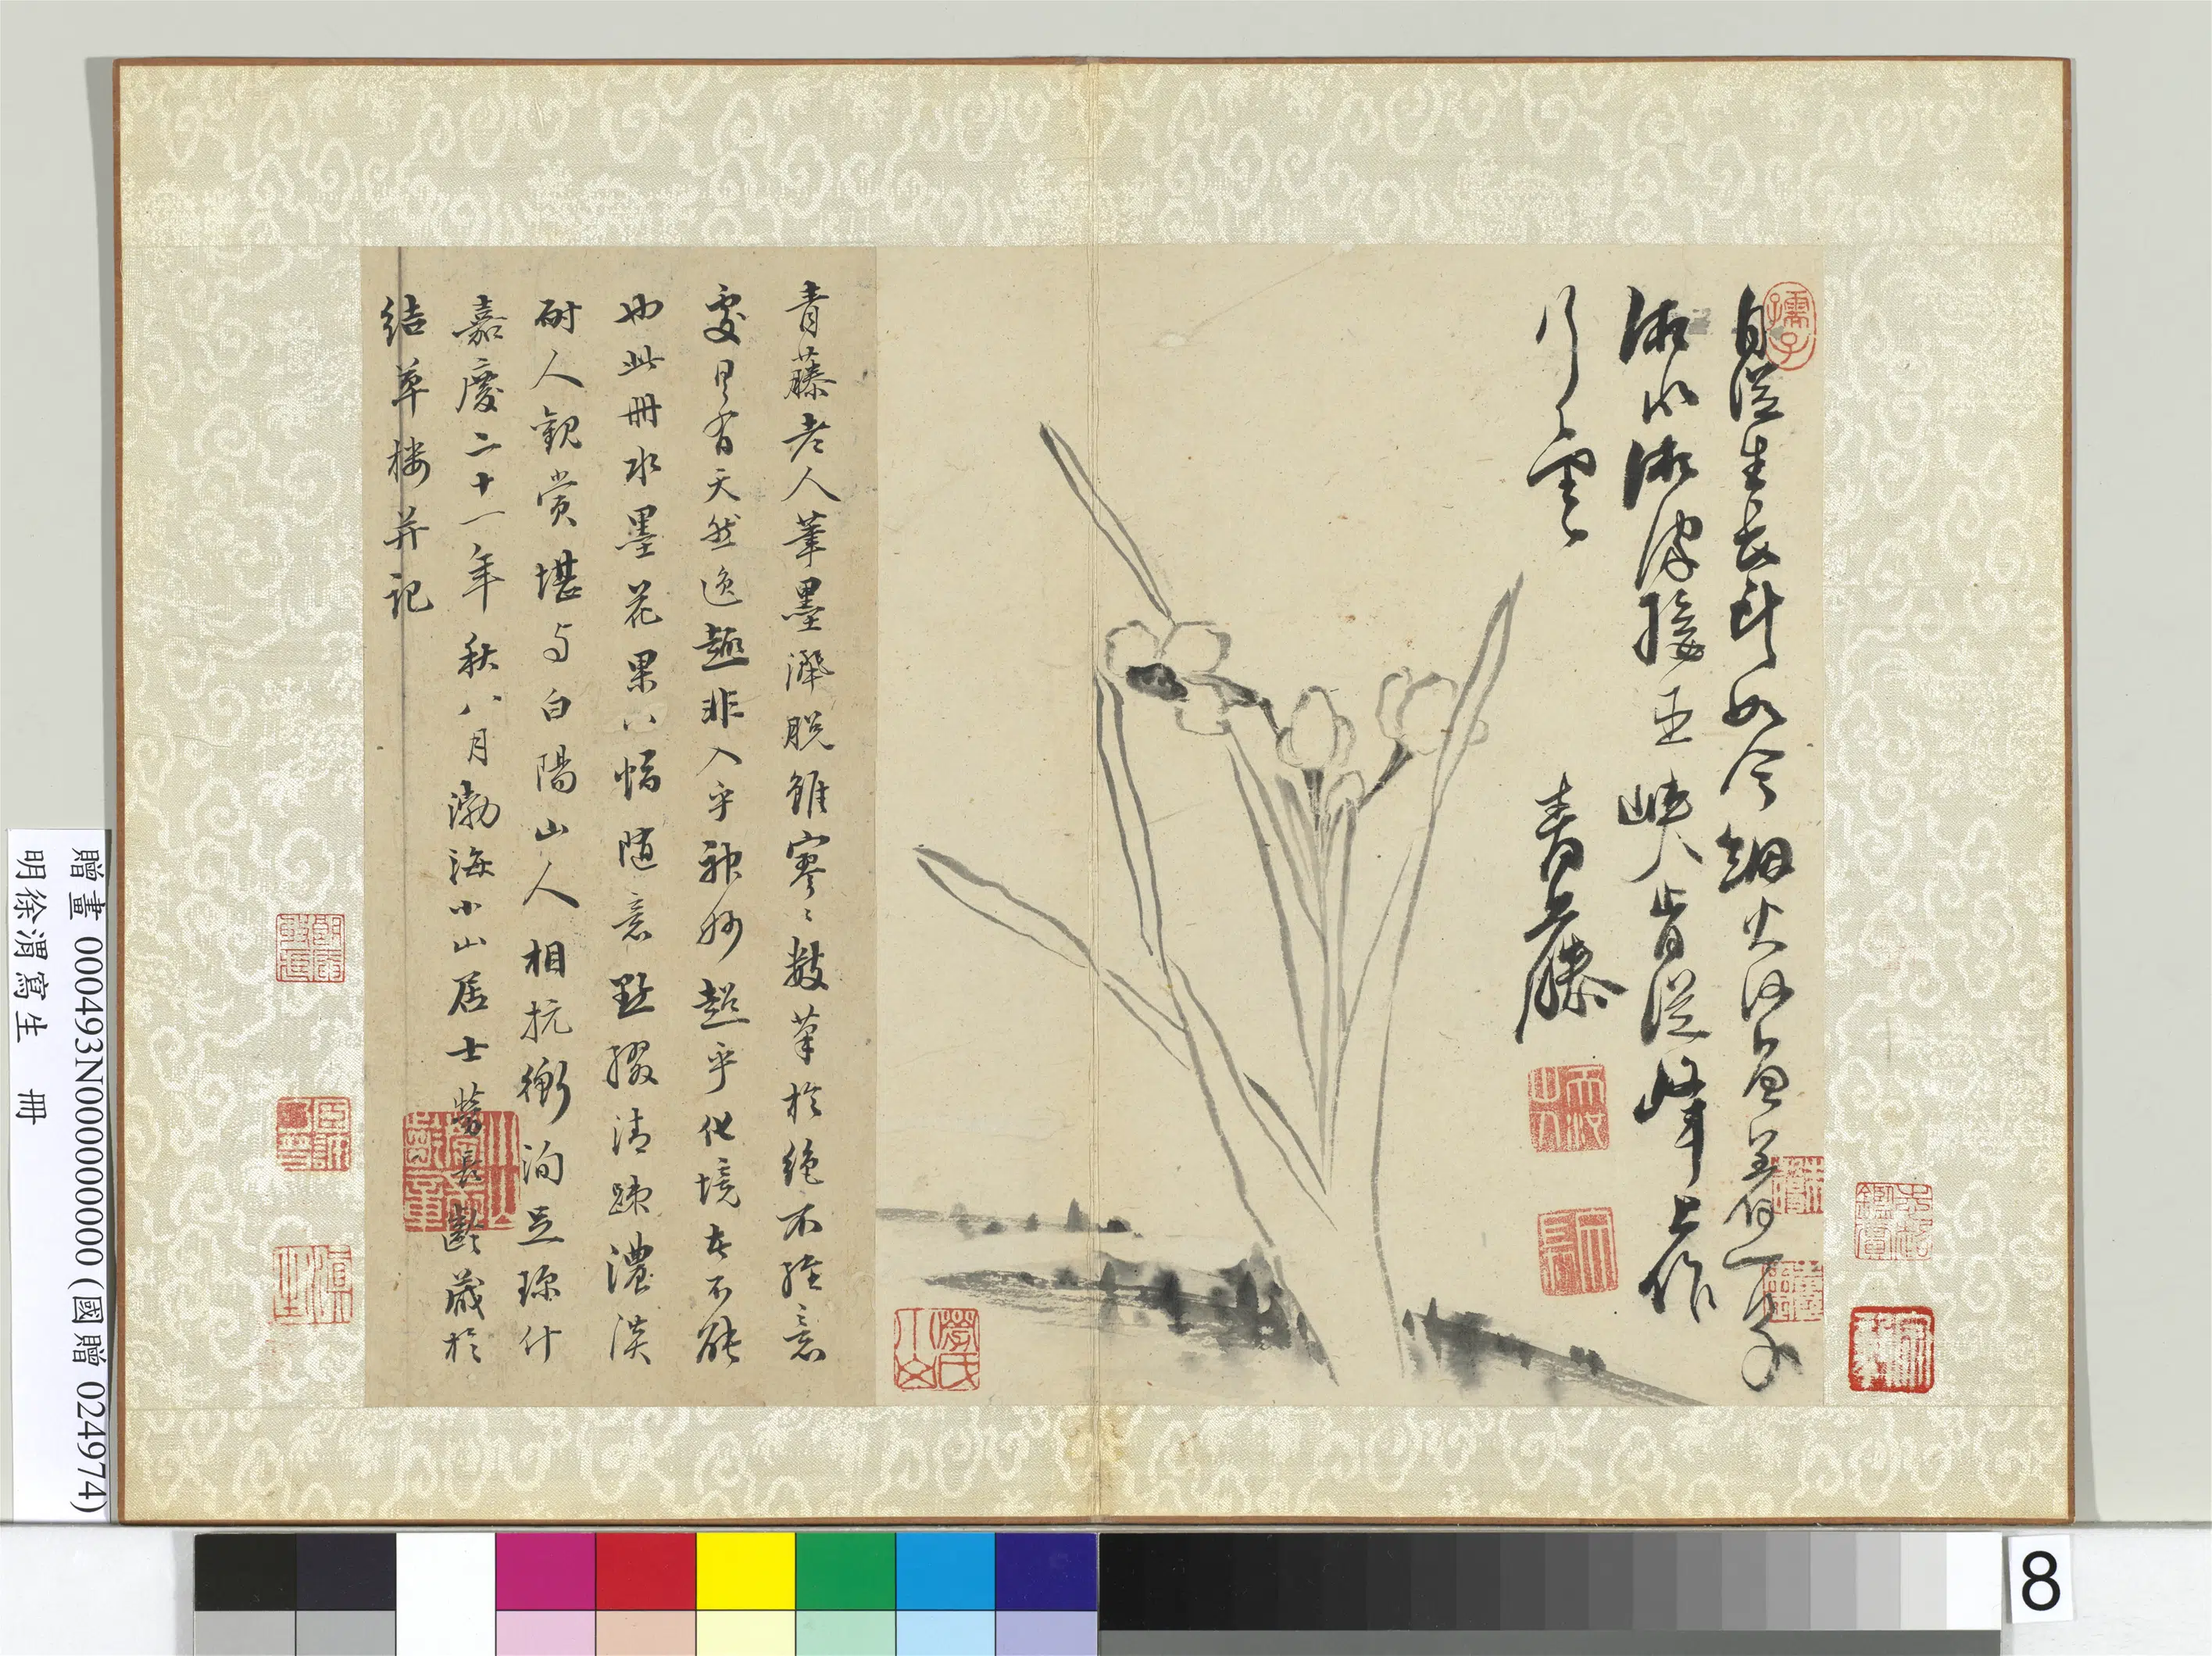 自從生長到如今烟火何曾著一分
湘水湘波接巫峽肯從峰上作
行雲
青藤
孺子
青藤老人筆墨灑脫雖寥寥數筆於絕不經意
處里有天然逸趣非入乎神妙超乎化境者不能
也此冊水墨花果八幅隨意點綴清疎濃淡
耐人觀賞堪与白陽山人相抗衡洵足珎什
嘉慶二十一年秋八月渤海小山居士勞長齡識於
結草樓并記
勞氏小山
贈畫 000493N000000000 (國贈 024974)
明徐渭寫生 冊
8